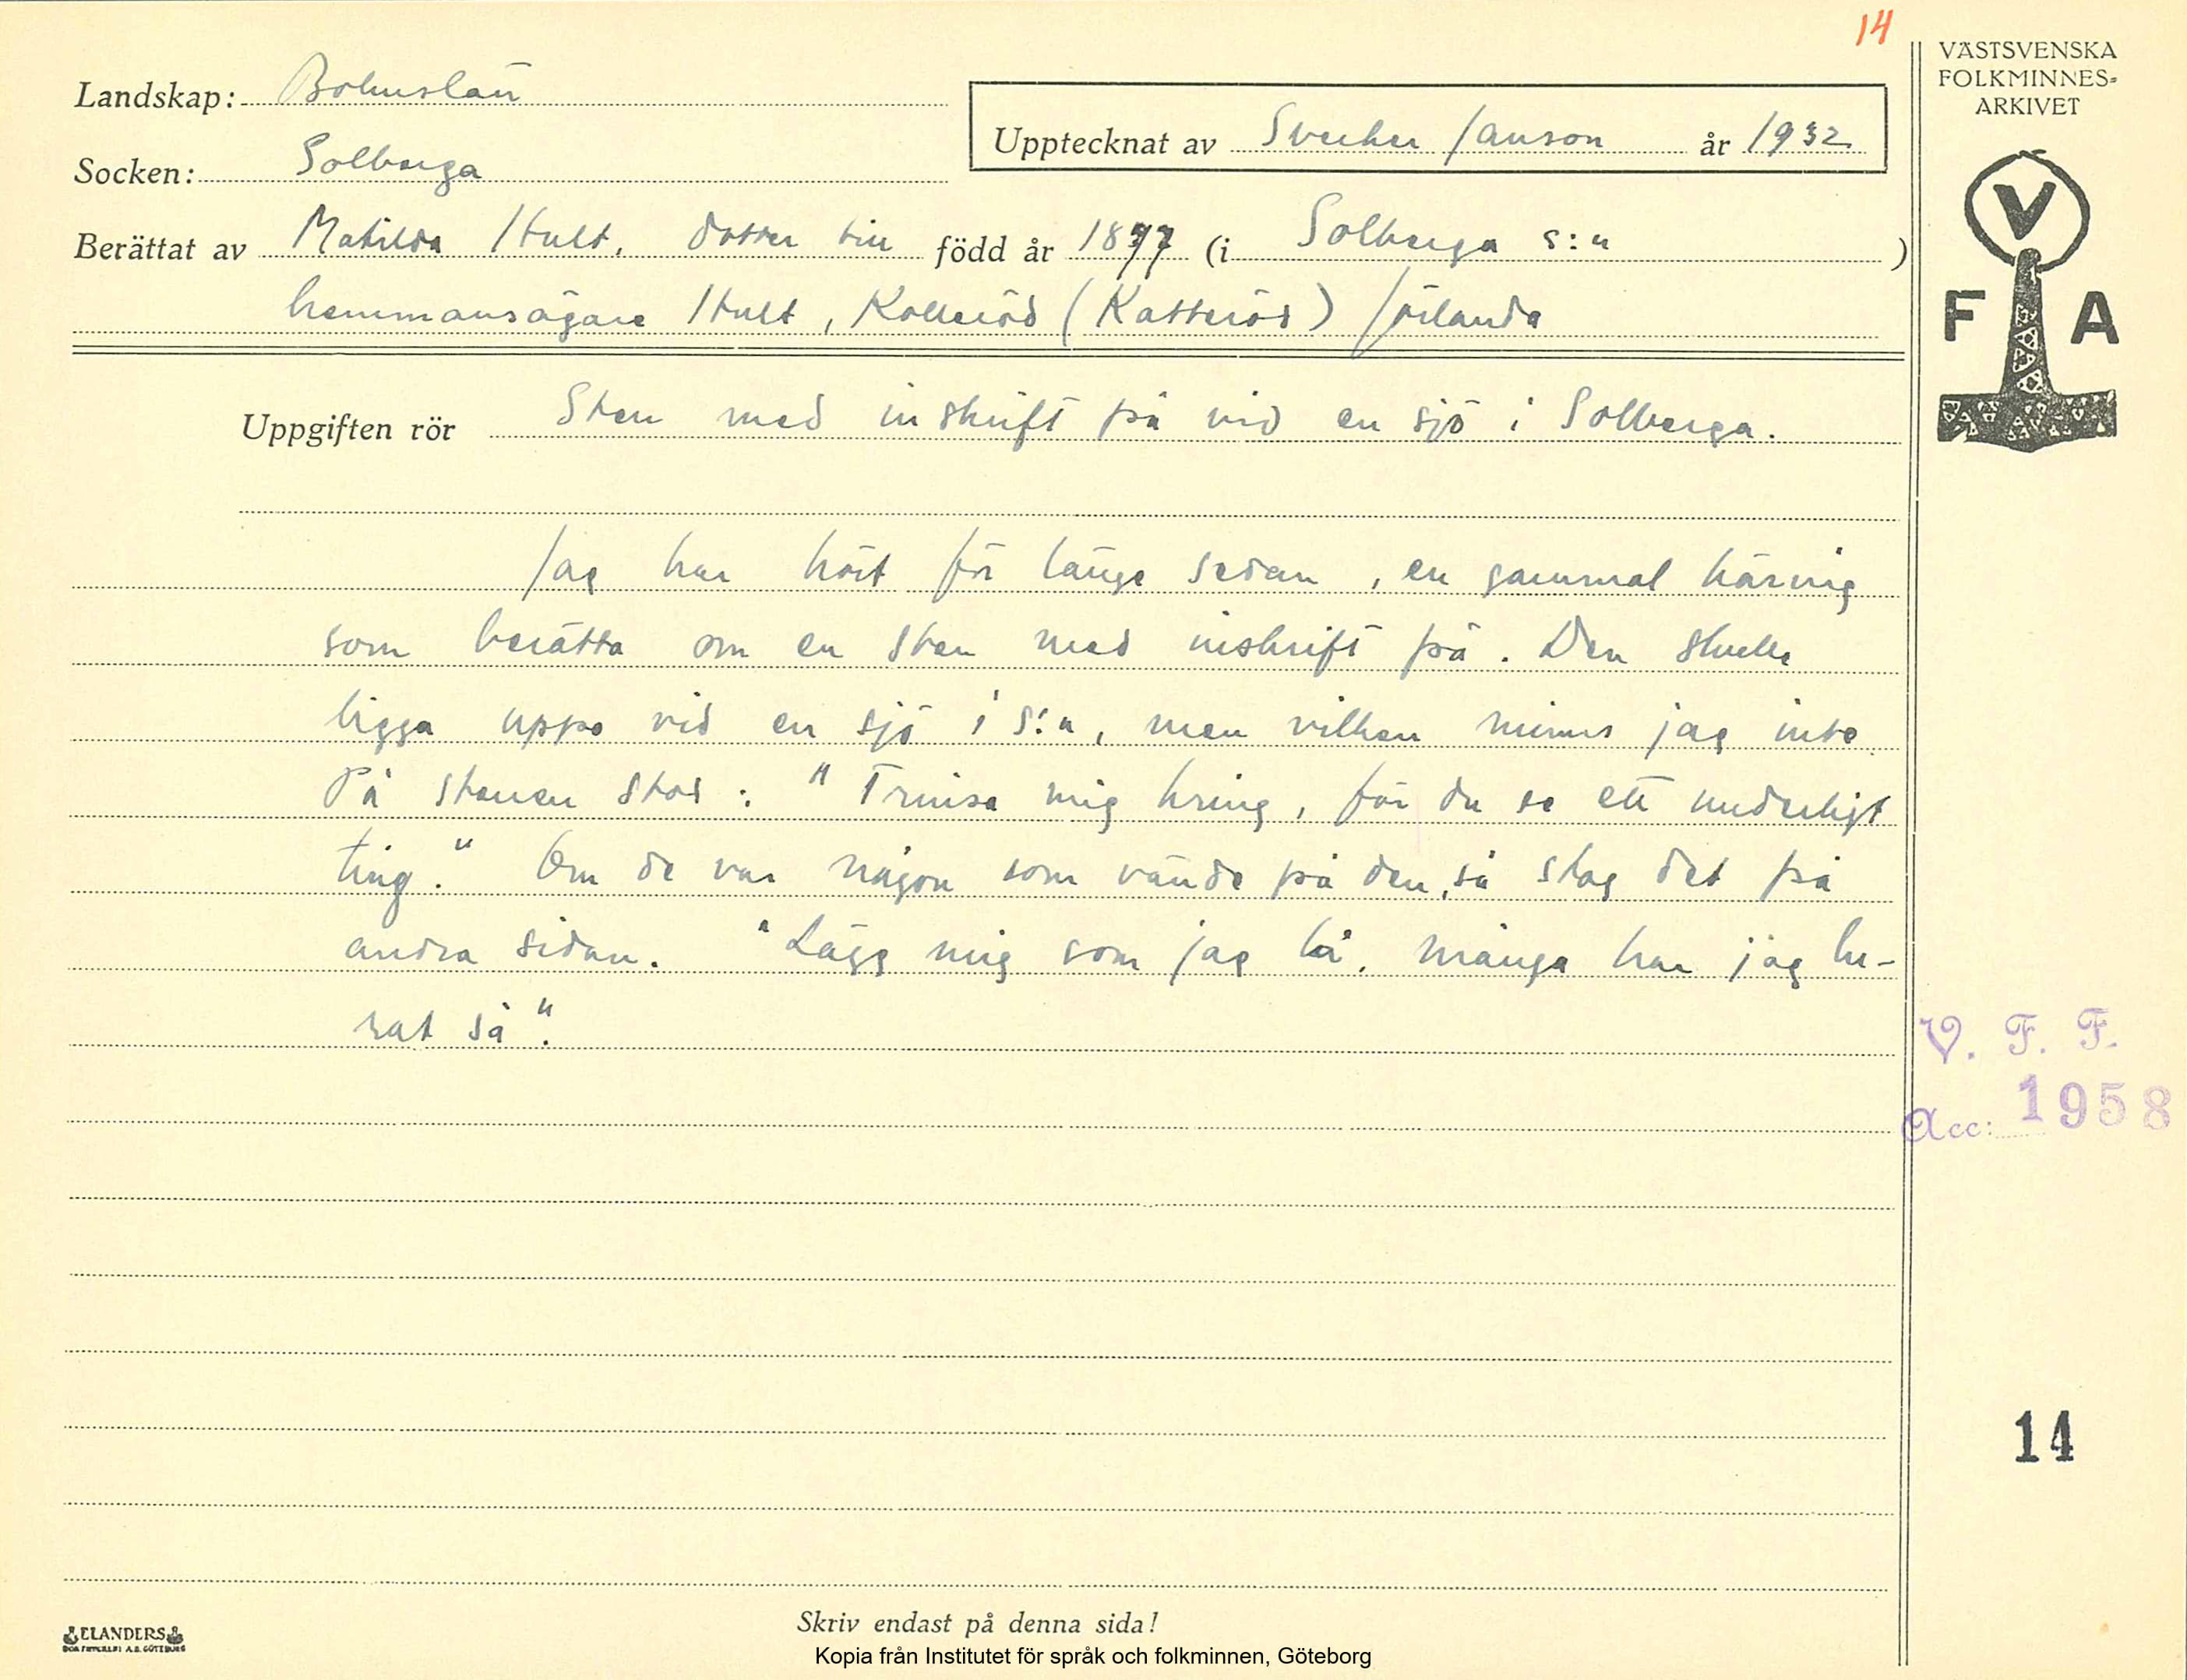 14
VÄSTSVENSKA
FOLKMINNES-
ARKIVET
Landskap: Bohuslän
Upptecknat av Sverker Janson år 1932
Socken: Solberga
Berättat av Matilda Hult, dotter till född år 1877 (i Solberga s:n )
hemmansägare Hult, Kolleröd (Katteröd) Jörlanda
V
F A
Uppgiften rör Sten med inskrift på vid en sjö i Solberga.
Jag har hört för länge sedan, en gammal käring
som berätta om en sten med inskrift på. Den skulle
ligga uppe vid en sjö i s:n, men vilken minns jag inte.
På stenen stod: "Trinsa mig kring, får du se ett underligt
ting." Om de var någon som vände på den, så stog det på
andra sidan. "Lägg mig som jag lå, många har jag lu-
rat så".
V. F. F.
Acc: 1958
14
ELANDERS
Skriv endast på denna sida!
Kopia från Institutet för språk och folkminnen, Göteborg